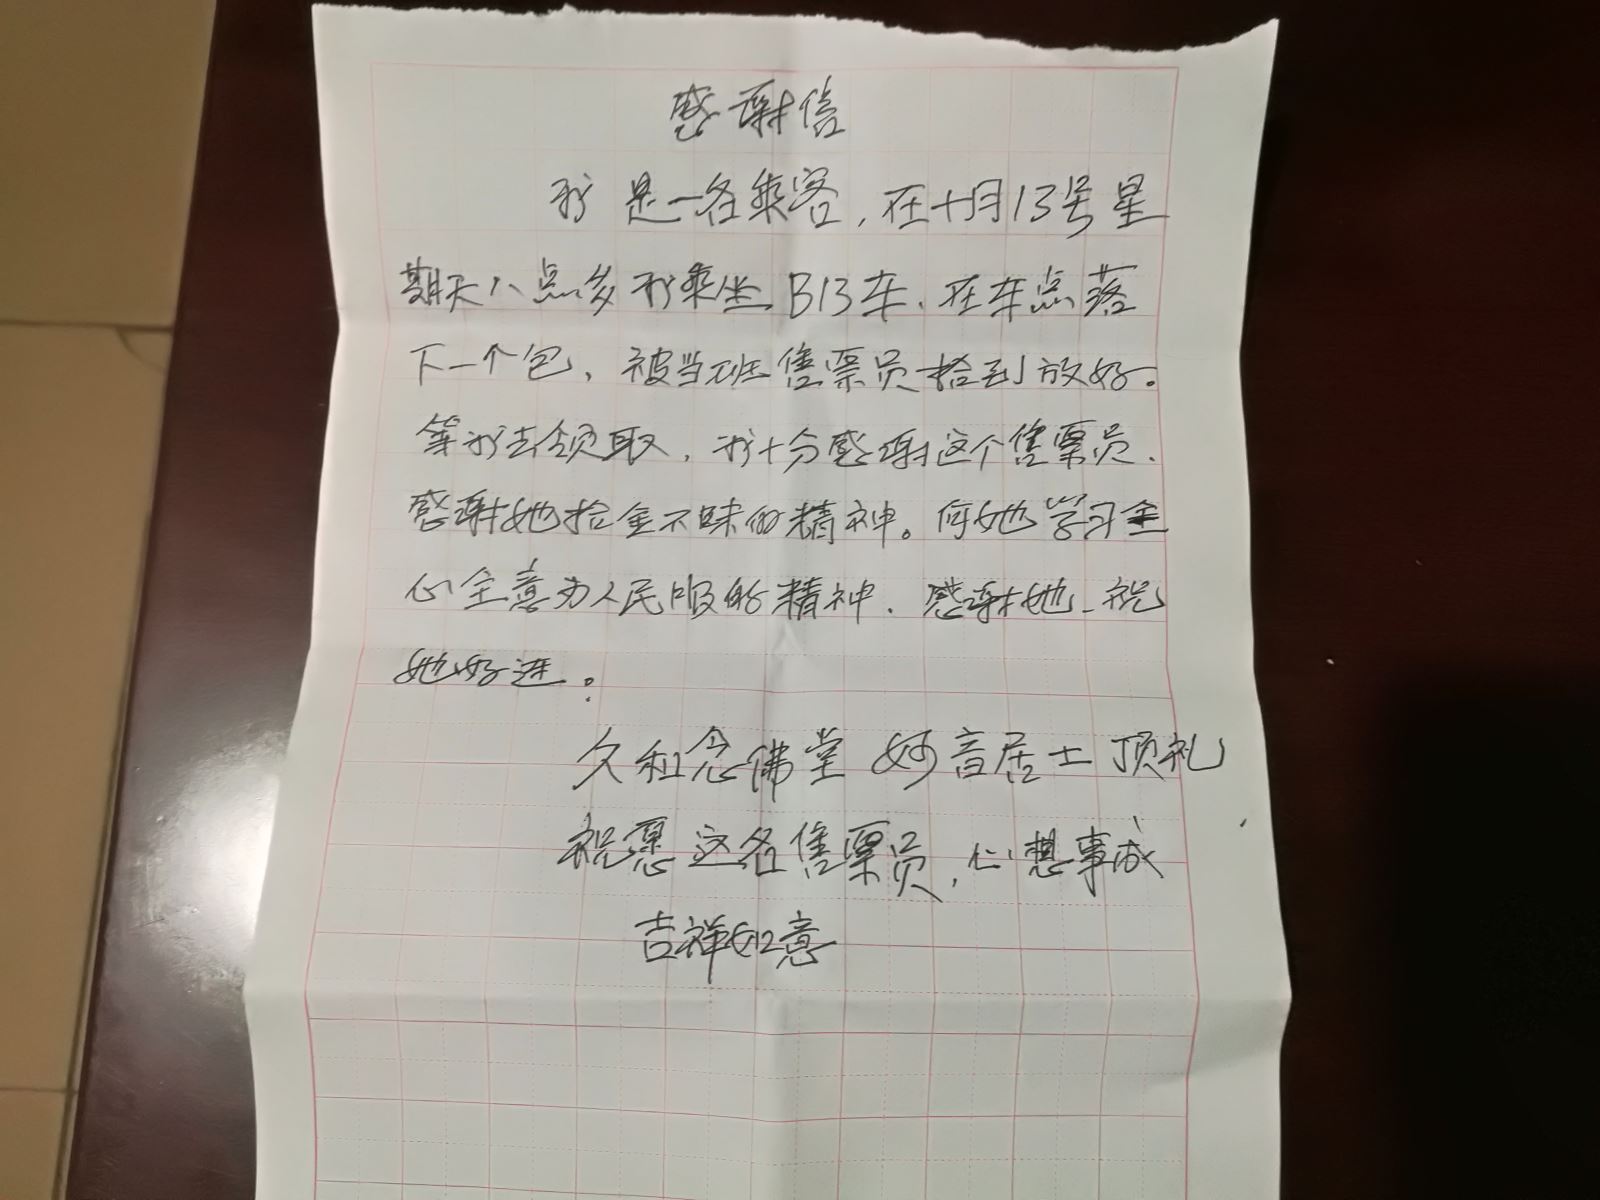 感谢信
我是一名乘客，在十月13号星
期天八点多我乘坐B13车、在车点落
下一个包、被当班售票员捡到放好。
等我去领取，我十分感谢这个售票员．
感谢她拾金不昧的精神。向她学习全
心全意为人民服的精神．感谢她、祝
她好进。
久和念佛堂 妙音居士 顶礼
祝愿这名售票员，心想事成
吉祥如意